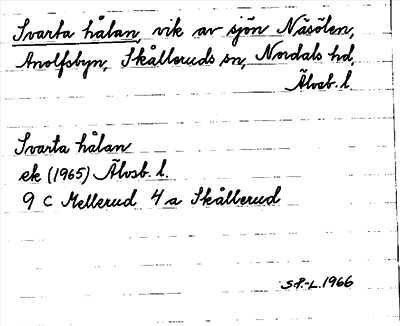 Svarta hålan, vik av sjön Näsölen,
Anolfsbyn, Skålleruds sn, Nordals hd,
Älvsb. l.
Svarta hålan
ek (1965) Älvsb. l.
9 C Mellerud 4 a Skållerud
S.P.-L. 1966